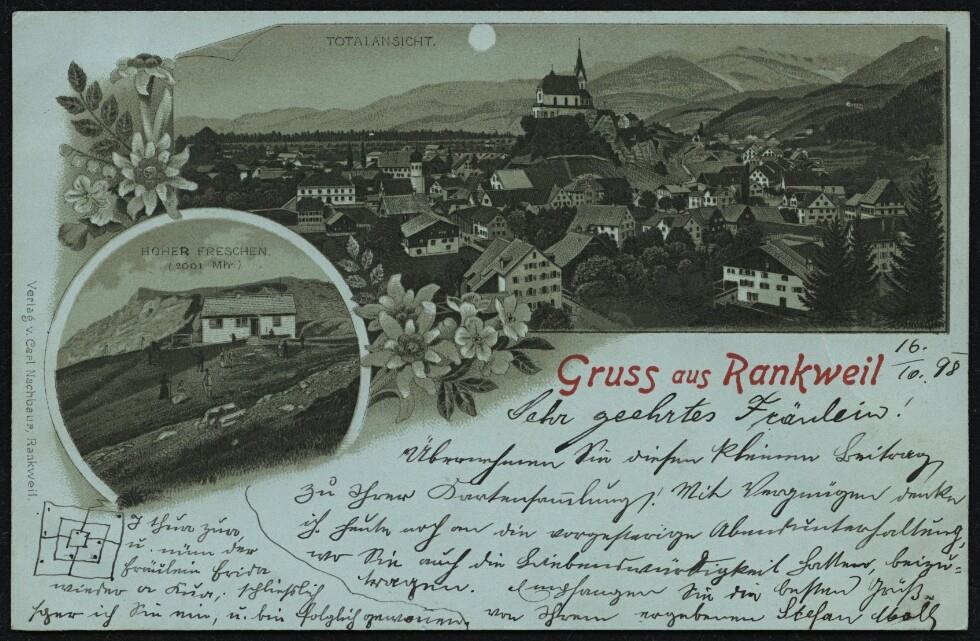 TOTALANSICHT.
HOHER FRESCHEN.
(2001 Mtr.)
Verlag v. Carl Nachbaur, Rankweil.
Gruss aus Rankweil
16./10. 98
Sehr geehrtes Fräulein!
Übernehmen Sie diesen kleinen Beitrag
zu Ihrer Kartensammlung! Mit Vergnügen denke
ich heute noch an die vorgestrige Abendunterhaltung,
wo Sie auch die Liebenswürdigkeit hatten, beizu-
tragen. Empfangen Sie die besten Grüße
von Ihrem ergebenen Stefan
I thua zua
u. nüm der
Fräulein Frida
wieder a Kua, schließlich
sper ich Sie ein, u. bin folglich gewonnen.